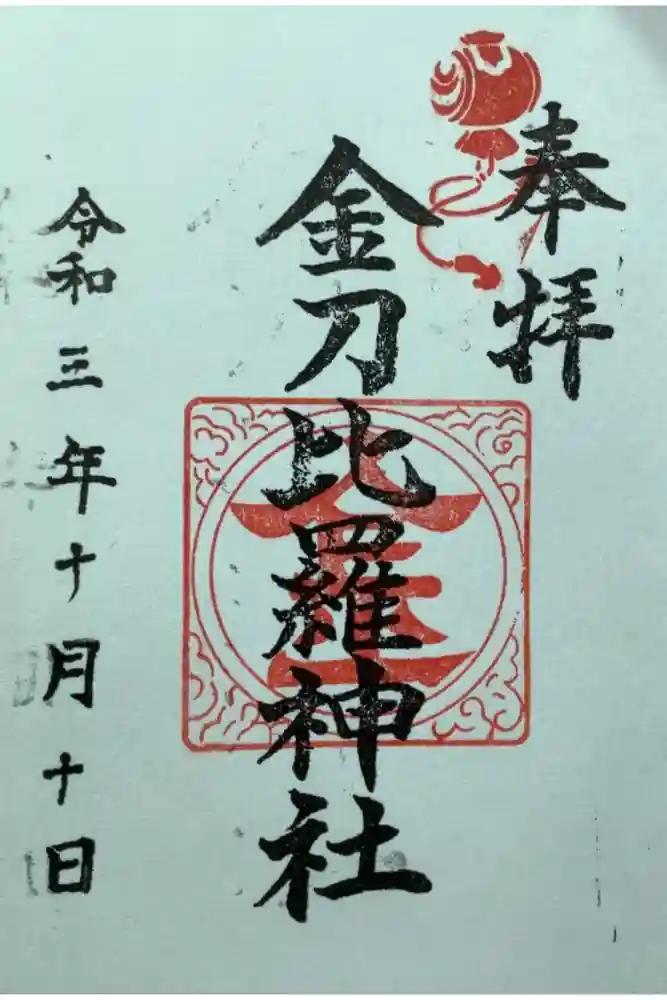 奉拝
金刀比羅神社
金
令和三年十月十日